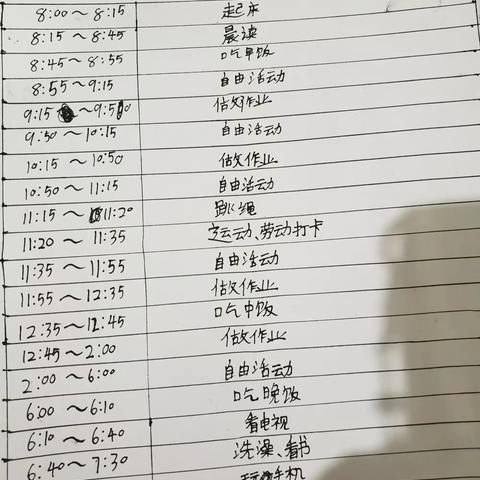 8:00～8:15 起床
8:15～8:45 晨读
8:45～8:55 吃早饭
8:55～9:15 自由活动
9:15～9:50 做作业
9:50～10:15 自由活动
10:15～10:50 做作业
10:50～11:15 自由活动
11:15～11:20 跳绳
11:20～11:35 运动、劳动打卡
11:35～11:55 自由活动
11:55～12:35 做作业
12:35～12:45 吃中饭
12:45～2:00 做作业
2:00～6:00 自由活动
6:00～6:10 吃晚饭
6:10～6:40 看电视
6:40～7:30 洗澡、看书
玩手机